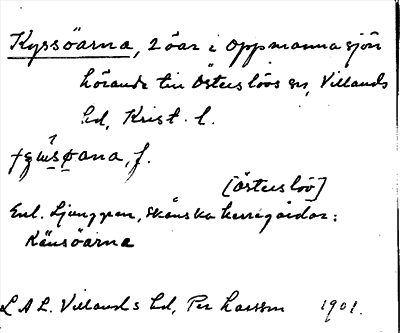 Kyssöarna, 2 öar i Oppmannasjön
hörande till Österslövs sn, Villands
hd, Krist. l.
f.
[Österslöv]
Enl. Ljunggren, Skånska herregårdar:
Känsöarna
L A L. Villands hd, Per Larsson 1901.